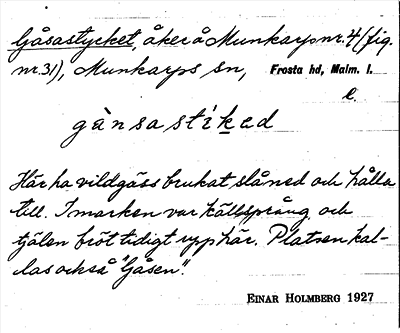 Gåsastycket, åker å Munkarp nr. 4 (fig.
nr. 31), Munkarps sn, Frosta hd, Malm. l.
l.
gȧnsastikeḍ
Här ha vildgäss brukat slå ned och hålla
till. I marken var källsprång och
tjälen bröt tidigt upp här. Platsen kal-
las också "Gåsen".
EINAR HOLMBERG 1927